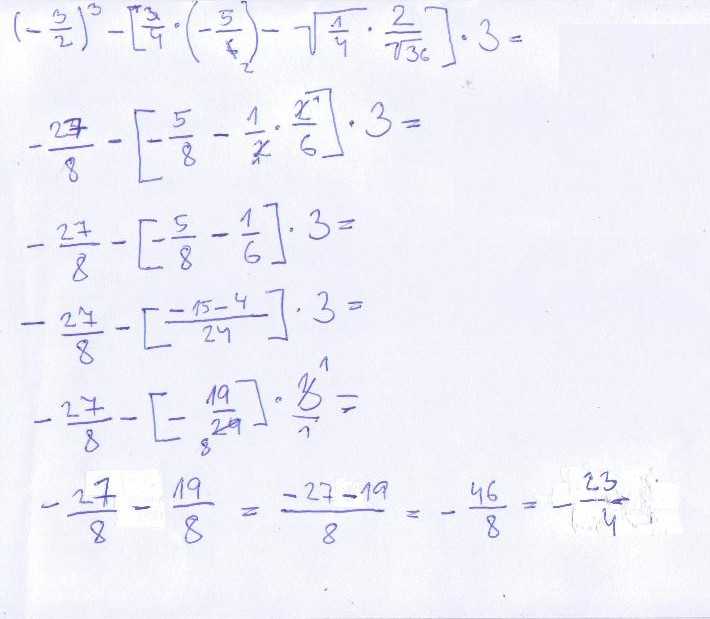 (-3/2)³ - [3/4 · (-5/6) - √(1/4) · 2/√36] · 3 =
-27/8 - [-5/8 - 1/2 · 2/6] · 3 =
-27/8 - [-5/8 - 1/6] · 3 =
-27/8 - [(-15-4)/24] · 3 =
-27/8 - [-19/24] · 3/1 =
-27/8 - 19/8 = (-27-19)/8 = -46/8 = -23/4